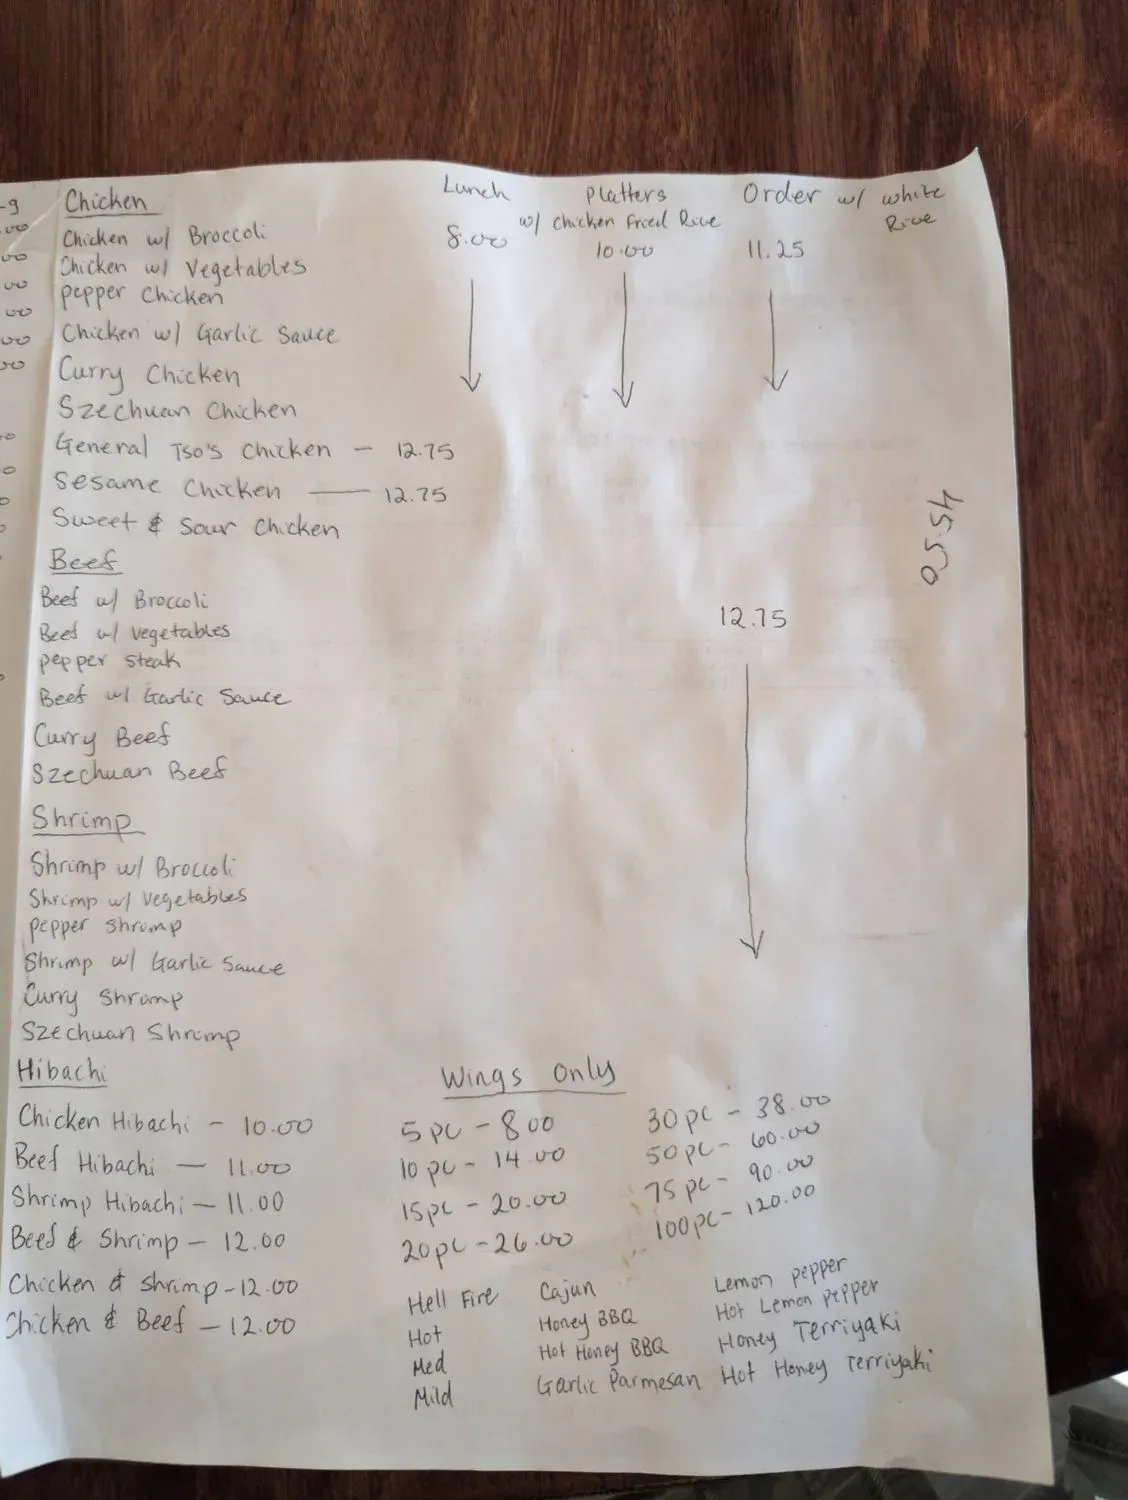 Chicken
Lunch
Platters
w/ Chicken Fried Rice
Order w/ white
Rice
Chicken w/ Broccoli
8.00
10.00
11.25
Chicken w/ Vegetables
pepper Chicken
Chicken w/ Garlic Sauce
Curry Chicken
Szechuan Chicken
General Tso's Chicken - 12.75
Sesame Chicken — 12.75
Sweet & Sour Chicken
4550
Beef
Beef w/ Broccoli
12.75
Beef w/ Vegetables
pepper steak
Beef w/ Garlic Sauce
Curry Beef
Szechuan Beef
Shrimp
Shrimp w/ Broccoli
Shrimp w/ Vegetables
pepper shrimp
Shrimp w/ Garlic Sauce
Curry Shrimp
Szechuan Shrimp
Hibachi
Chicken Hibachi - 10.00
Beef Hibachi — 11.00
Shrimp Hibachi - 11.00
Beef & Shrimp - 12.00
Chicken & shrimp - 12.00
Chicken & Beef - 12.00
Wings Only
5 pc - 8.00
10 pc - 14.00
15 pc - 20.00
20 pc - 26.00
30 pc - 38.00
50 pc - 60.00
75 pc - 90.00
100 pc - 120.00
Hell Fire
Hot
Med
Mild
Cajun
Honey BBQ
Hot Honey BBQ
Garlic Parmesan
Lemon pepper
Hot Lemon pepper
Honey Terriyaki
Hot Honey Terriyaki